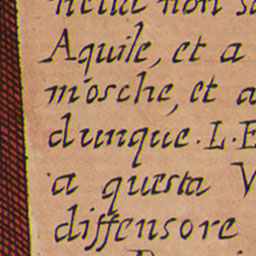 non
Aquile, et a
mosche, et a
dunque. L. E
a questa V
diffensore